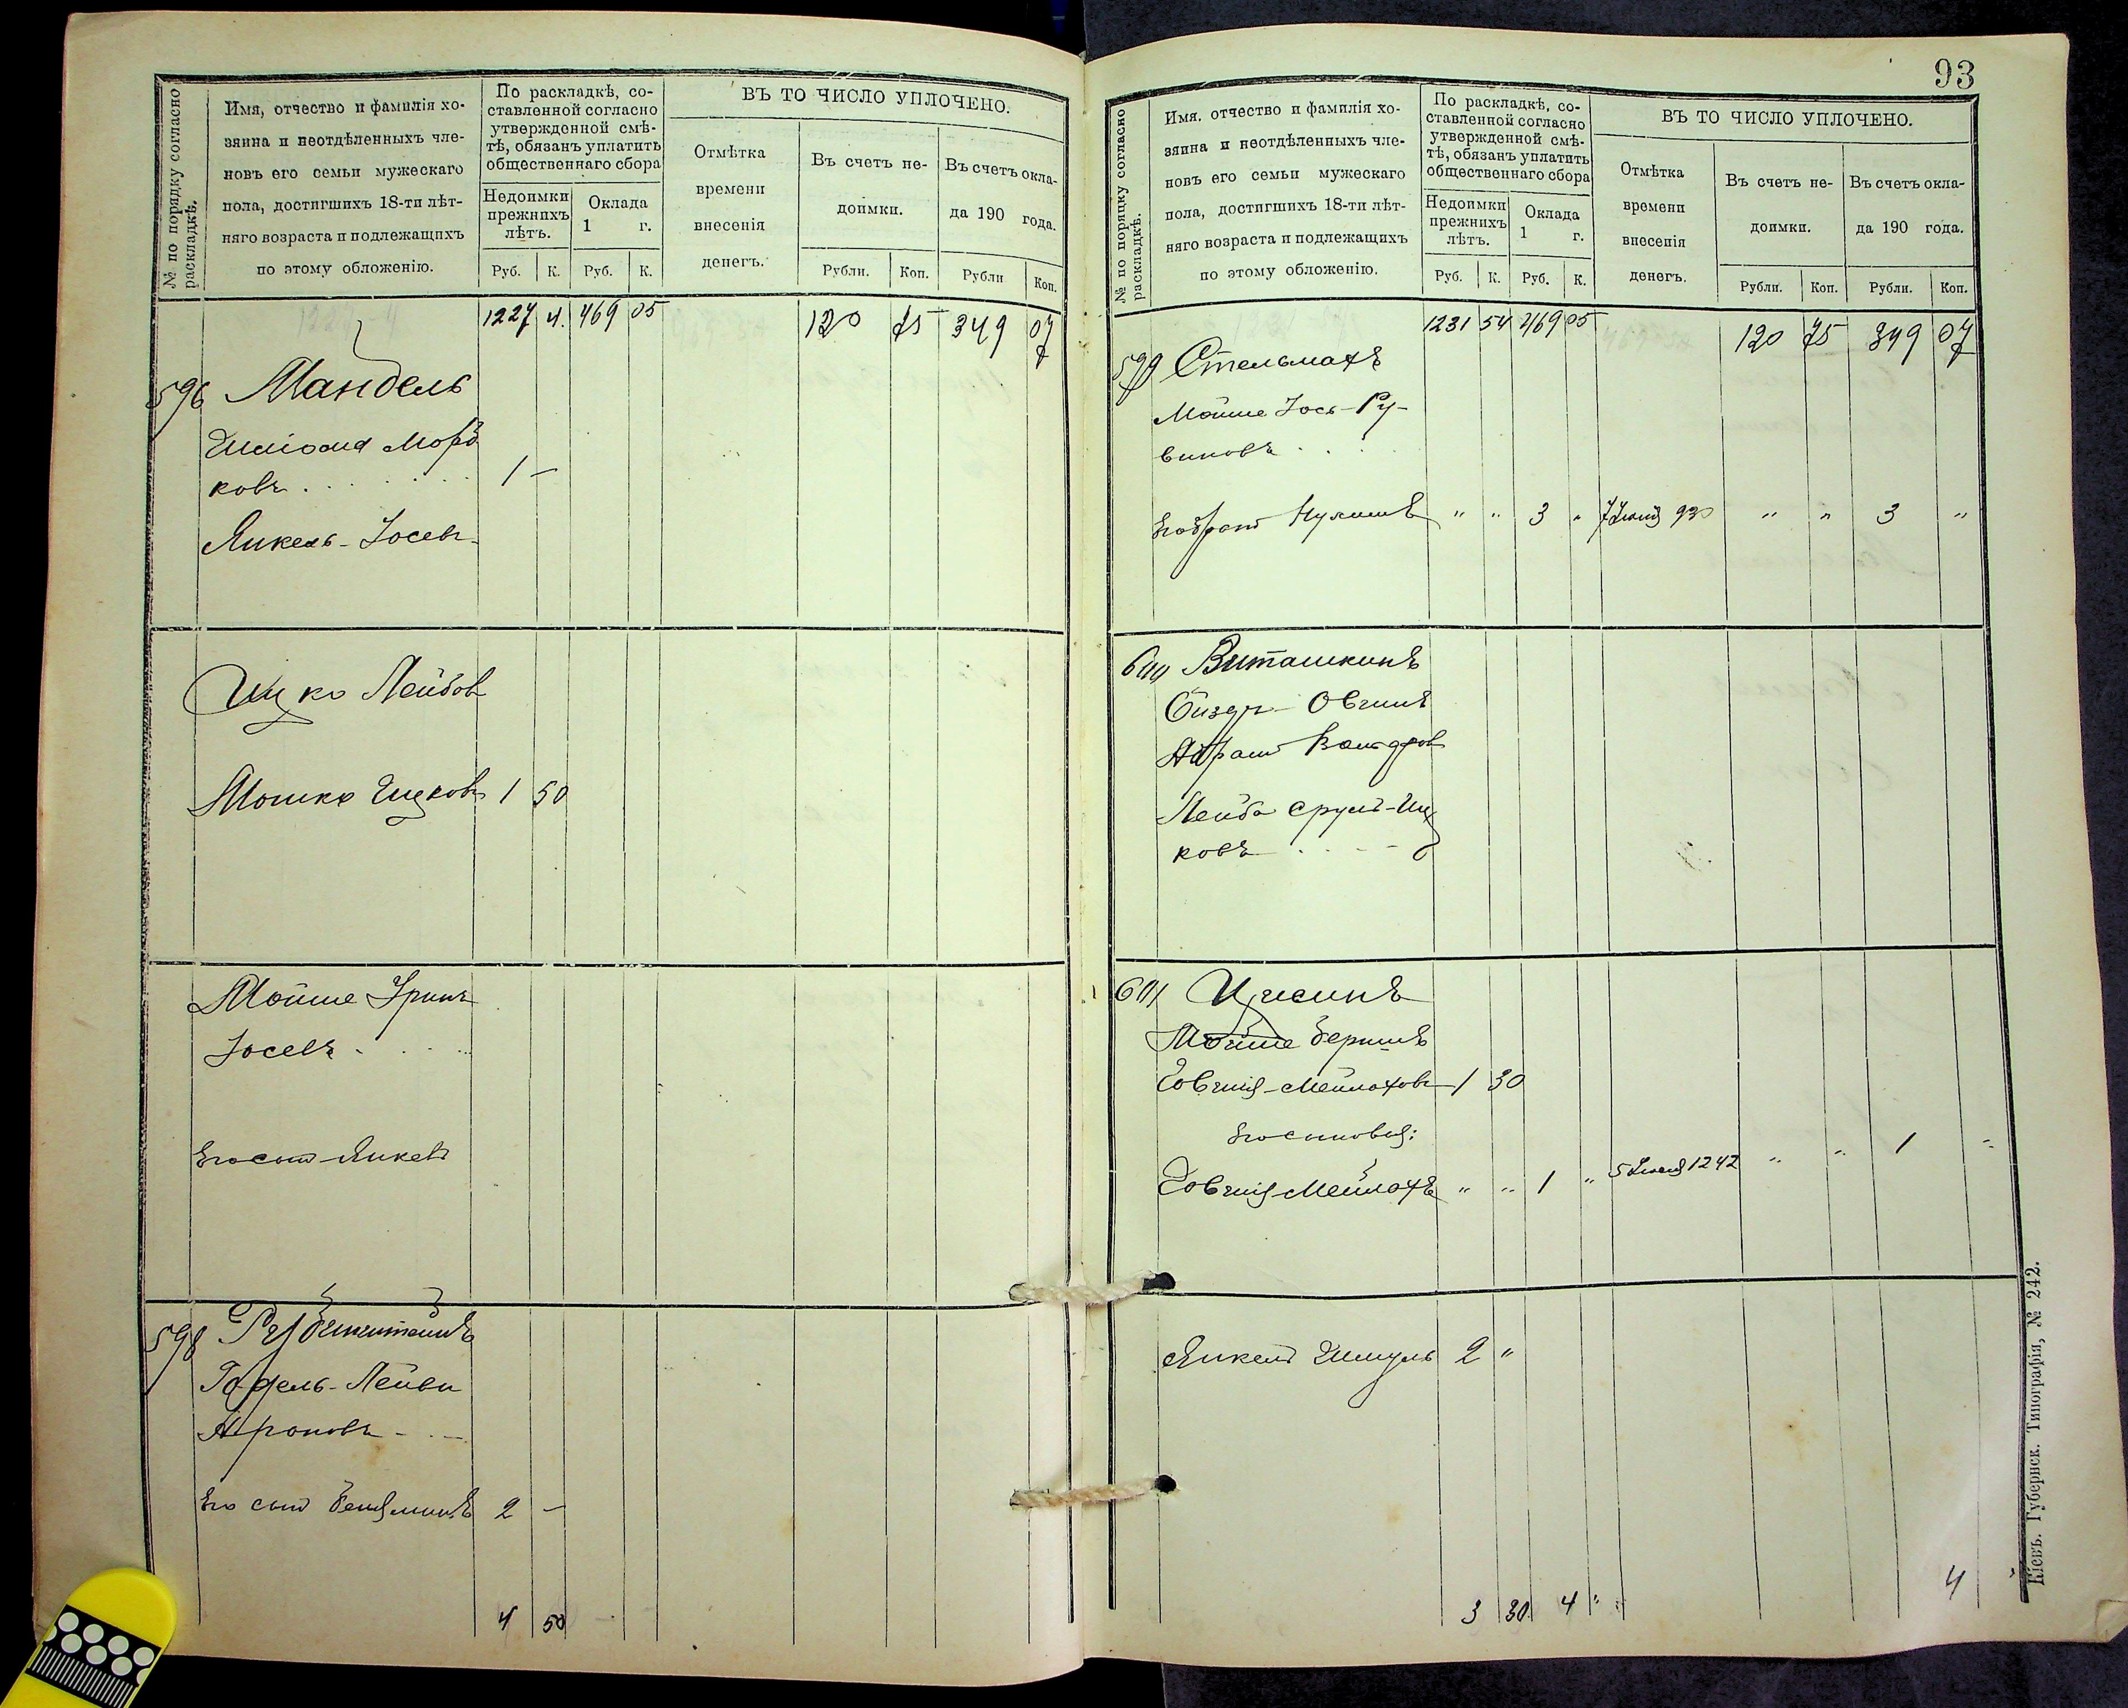 № по порядку согласно раскладкѣ.
Имя, отчество и фамилія хо-
зяина и неотдѣленныхъ чле-
новъ его семьи мужескаго
пола, достигшихъ 18-ти лѣт-
няго возраста и подлежащихъ
по этому обложенію.
По раскладкѣ, со-
ставленной согласно
утвержденной смѣ-
тѣ, обязанъ уплатить
общественнаго сбора
Недоимки
прежнихъ
лѣтъ.
Оклада
1 г.
Руб. К. Руб. К.
ВЪ ТО ЧИСЛО УПЛОЧЕНО.
Отмѣтка
времени
внесенія
денегъ.
Въ счетъ не-
доимки.
Въ счетъ окла-
да 190 года.
Рубли. Коп. Рубли Коп.
1227 4. 469 05 120 75 349 07
596 Мандель
Шлiома Морд
ковъ . . . . . . . 1 —
Янкель-Іосевъ
Ицко Лейбов
Мошко Ицковъ 1 50
Мойше Сруль
Іосевъ . . . .
Его сынъ Янкель
598 Рубинштейнъ
Годель-Лейви
Ароновъ - . —
Его сынъ Беньяминъ 2 —
4 50
93
№ по порядку согласно раскладкѣ.
Имя. отчество и фамилія хо-
зяина и неотдѣленныхъ чле-
новъ его семьи мужескаго
пола, достигшихъ 18-ти лѣт-
няго возраста и подлежащихъ
по этому обложенію.
По раскладкѣ, со-
ставленной согласно
утвержденной смѣ-
тѣ, обязанъ уплатить
общественнаго сбора
Недоимки
прежнихъ
лѣтъ.
Оклада
1 г.
Руб. К. Руб. К.
ВЪ ТО ЧИСЛО УПЛОЧЕНО.
Отмѣтка
времени
внесенія
денегъ.
Въ счетъ не-
доимки.
Въ счетъ окла-
да 190 года.
Рубли. Коп. Рубли. Коп.
1231 54 469 05 120 75 349 07
599 Стельмахъ
Мойше Іось-Ру-
виновъ . . .
Его братъ " " 3 " 7 930 " " 3 "
600 Виташкинъ
Овшій
Абрамъ
Лейба Сруль-Иц
ковъ . . - -
601
Мойше Берши
Мейлаховъ 1 30
Его сыновья:
Мейлахъ " " 1 " 5 1242 " " 1 "
Янкель Шмуль 2 "
3 30 4 " 4
Кіевъ. Губернск. Типографія, № 242.